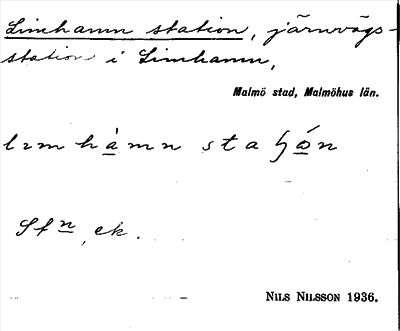 Limhamn station, järnvägs-
station i Limhamn,
Malmö stad, Malmöhus län.
Stn, ek.
NILS NILSSON 1936.